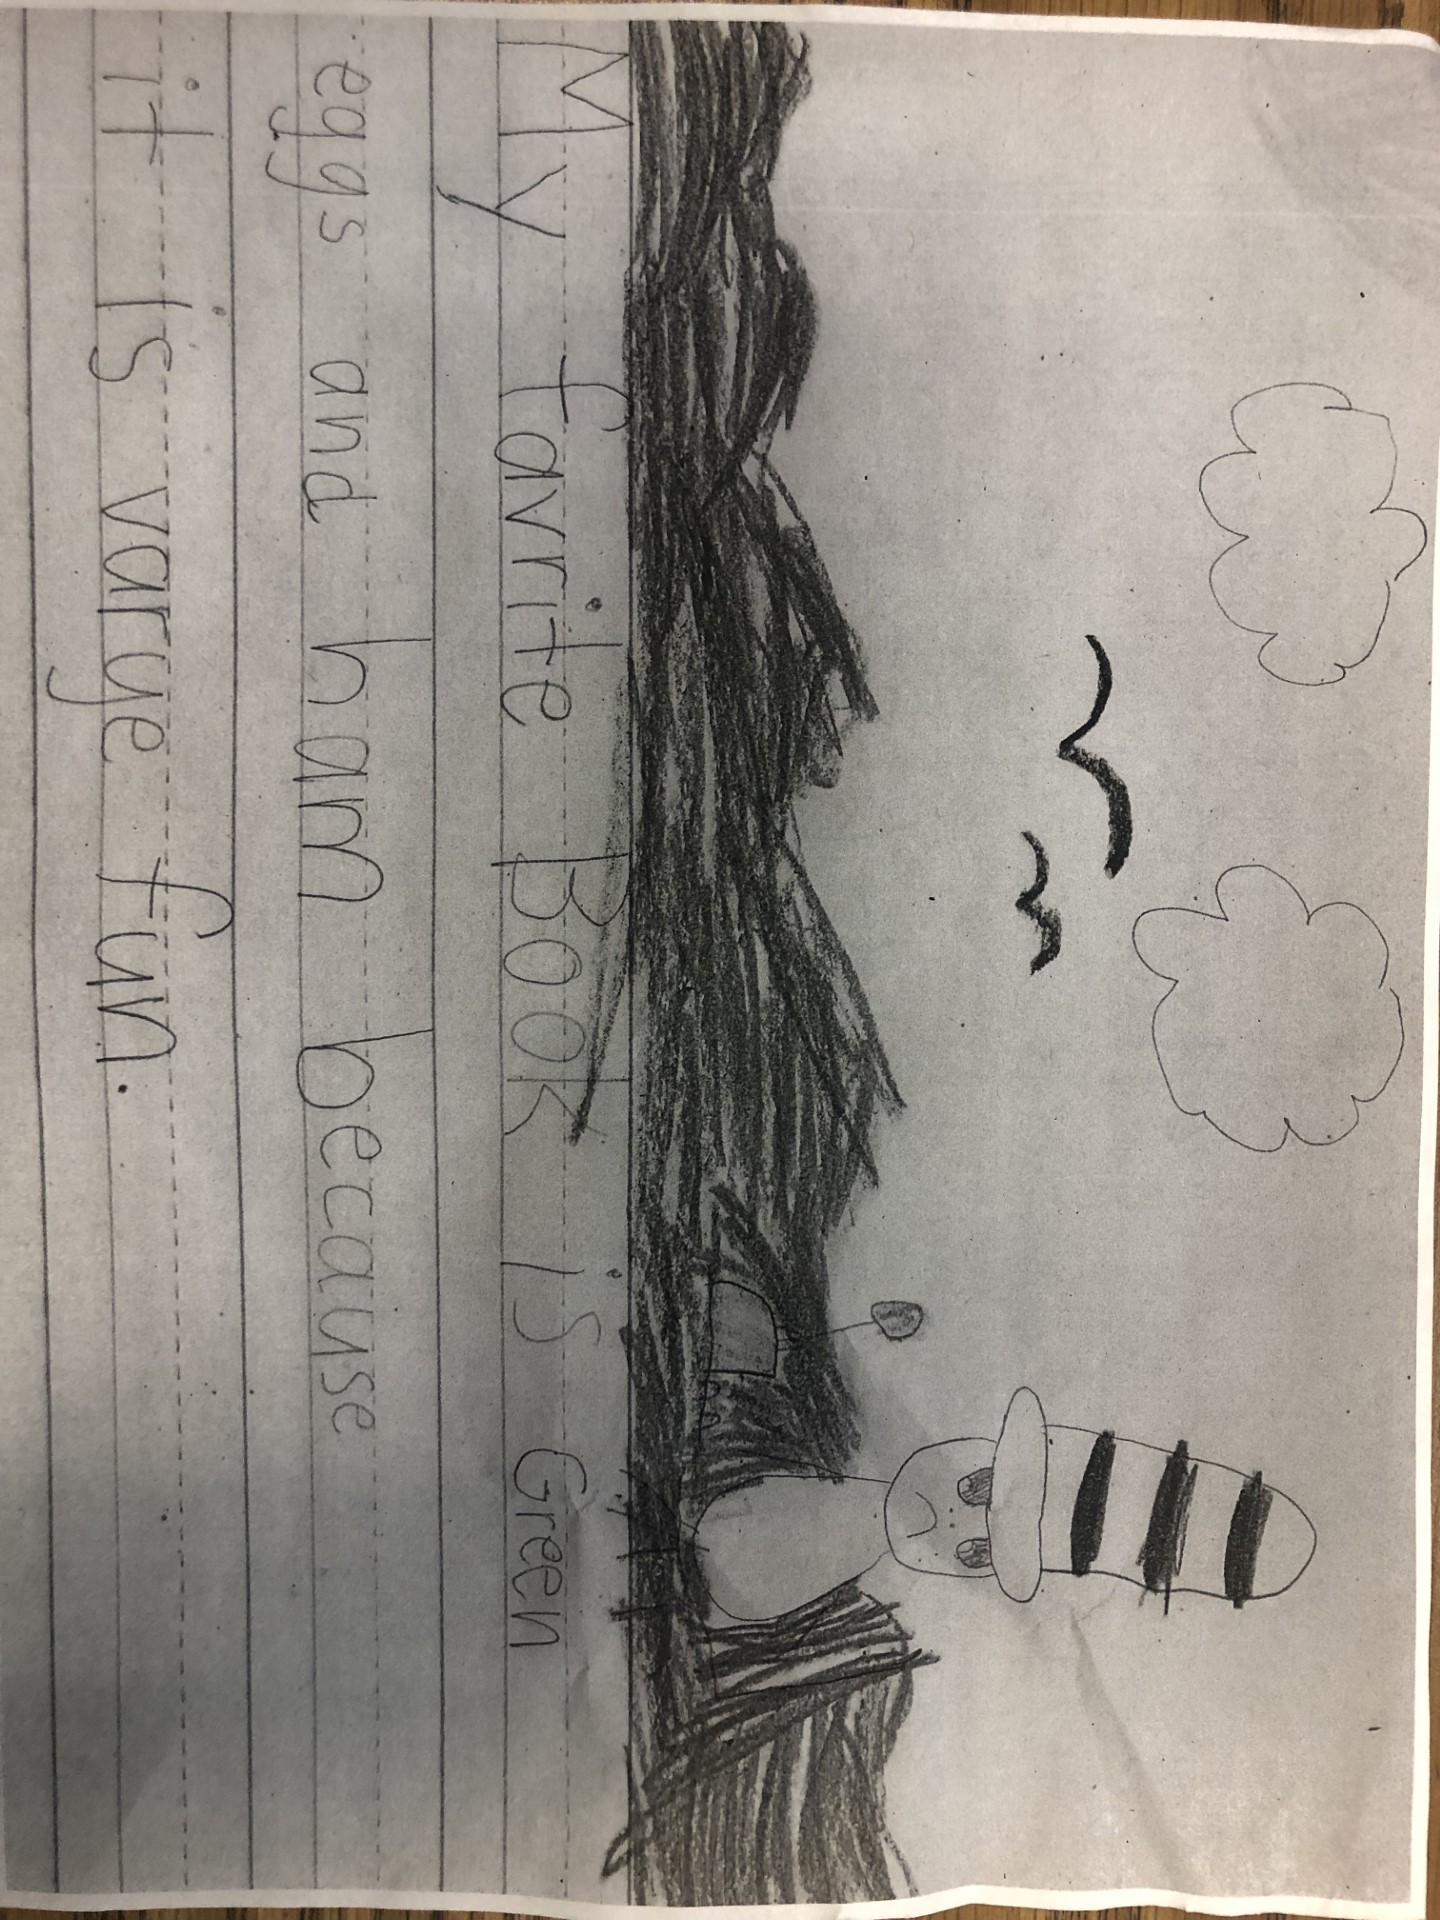 My favrite Book is Green
eggs and ham because
it is varye fun.